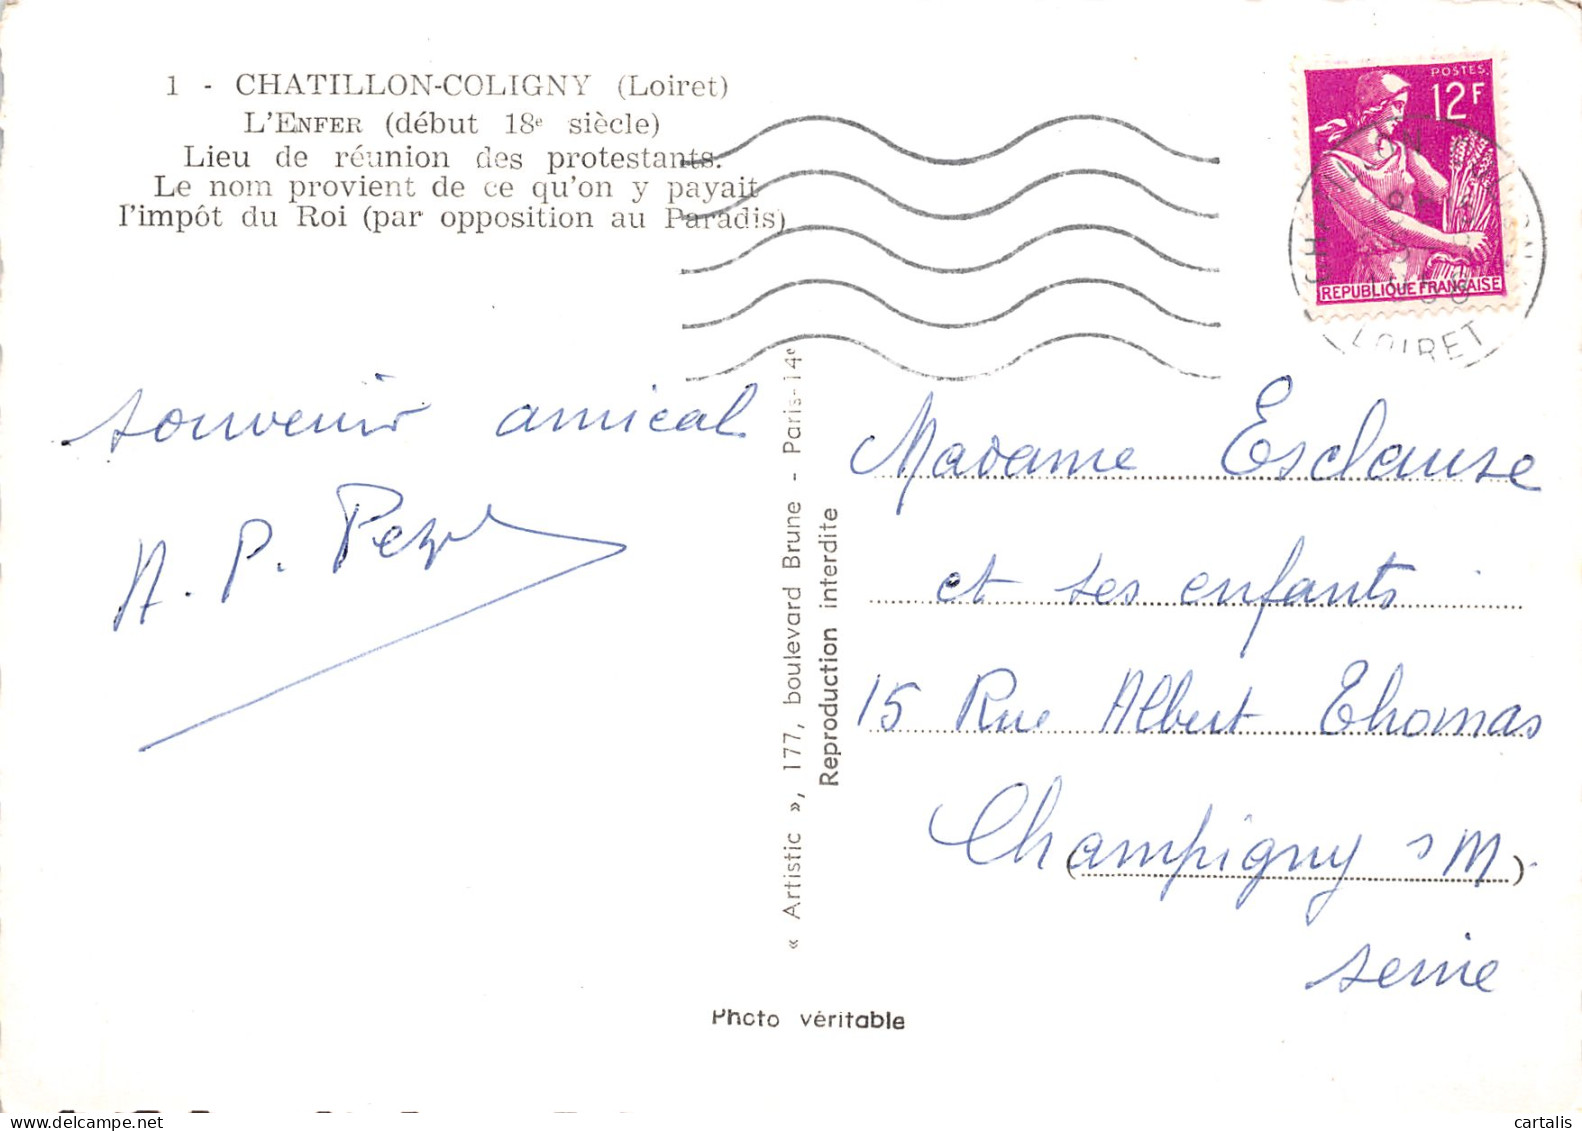 1 - CHATILLON-COLIGNY (Loiret)
L'ENFER (début 18e siècle)
Lieu de réunion des protestants.
Le nom provient de ce qu'on y payait
l'impôt du Roi (par opposition au Paradis)
POSTES
12F
REPUBLIQUE FRANÇAISE
LOIRET
souvenir amical
A. P.
« Artistic », 177, boulevard Brune - Paris-14e
Reproduction interdite
Madame Esclause
et ses enfants
15 Rue Albert Thomas
Champigny s M
seine
Photo véritable
cartalis